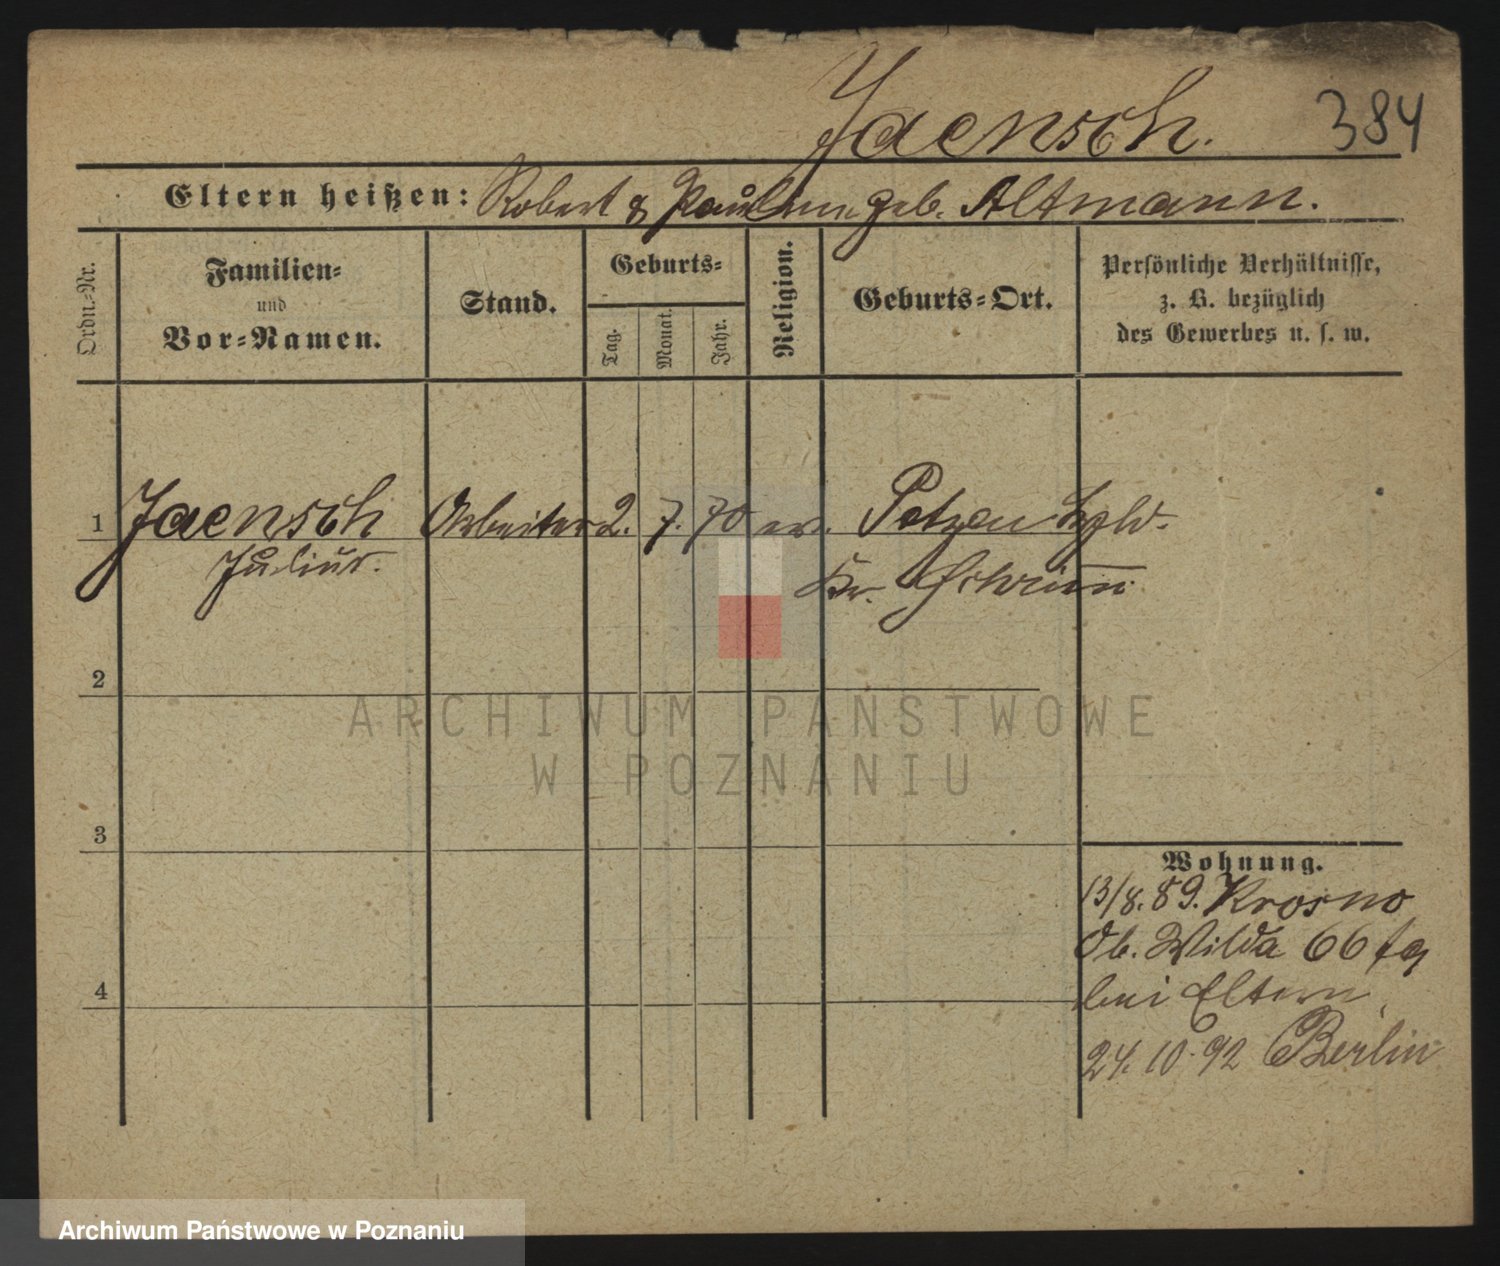 Jaensch.
384
Eltern heißen: Robert & Pauline geb. Altmann.
Ordn.-Nr.
Familien-
und
Vor-Namen.
Stand.
Geburts-
Tag.
Monat.
Jahr.
Religion.
Geburts-Ort.
Persönliche Verhältnisse,
z. B. bezüglich
des Gewerbes u. s. w.
1 Jaensch Arbeiter 2. 7. 70 ev.
Julius.
Kr. Schrimm
2
3
4
Wohnung.
13/8. 89. Krosno
Ob. Wilda 66
bei Eltern
24. 10. 92 Berlin
ARCHIWUM PAŃSTWOWE
W POZNANIU
Archiwum Państwowe w Poznaniu